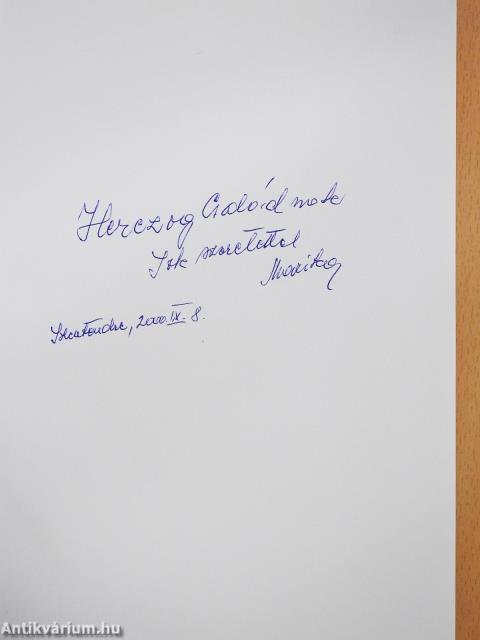 Herczog Családnak
Sok szeretettel
Szentendre, 2000. IX. 8.
Antikvárium.hu